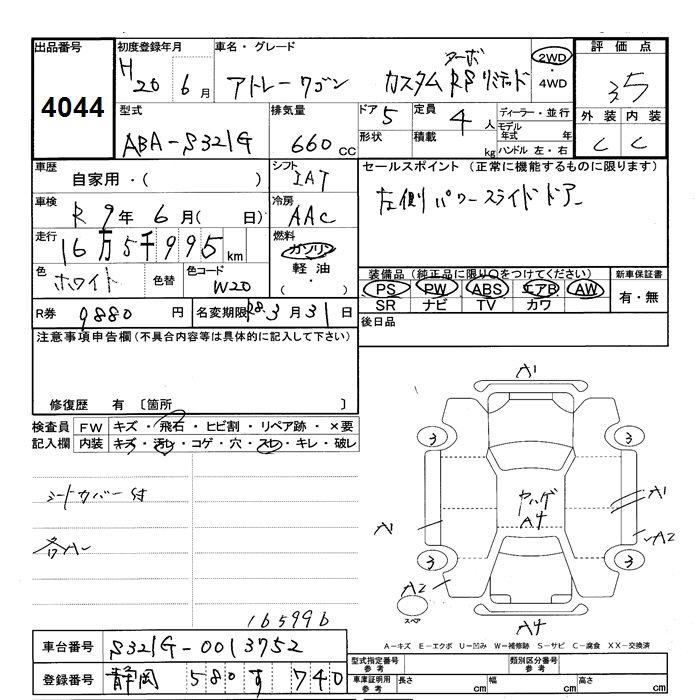 出品番号 初度登録年月 車名・グレード 評価点
4044 H20 6月 アトレーワゴン カスタム ターボ RS リミテッド 2WD・4WD 3.5
型式 排気量 ドア 5 定員 4人 ディーラー・並行 外装 内装
ABA-S321G 660cc 形状 積載 kg モデル年式 年 C C
ハンドル 左・右
車歴 シフト セールスポイント (正常に機能するものに限ります)
自家用・( ) IAT 左側パワースライドドア
車検 R9年6月( 日) 冷房 AAC
走行 16万5千995km 燃料 ガソリン
軽油
( ・ )
色 ホワイト 色替 色コード W20
装備品(純正品に限り○をつけてください) 新車保証書
PS PW ABS エアB AW 有・無
SR ナビ TV カワ
R券 9880円 名変期限 R8.3月31日 後日品
注意事項申告欄(不具合内容等は具体的に記入して下さい)
修復歴 有 〔箇所 〕
検査員 FW キズ・飛石・ヒビ割・リペア跡・×要
記入欄 内装 キズ・汚レ・コゲ・穴・スレ・キレ・破レ
シートカバー付
165996
A1
3 3
ヤハゲ
A4
A1
A1 A2
3 3
A2
スペア
A4
A-キズ E-エクボ U-凹み W-補修跡 S-サビ C-腐食 XX-交換済
車台番号 S321G-0013752
登録番号 静岡 580 す 740
型式指定番号 参考 類別区分番号 参考
車庫証明用 参考 長さ cm 幅 cm 高さ cm